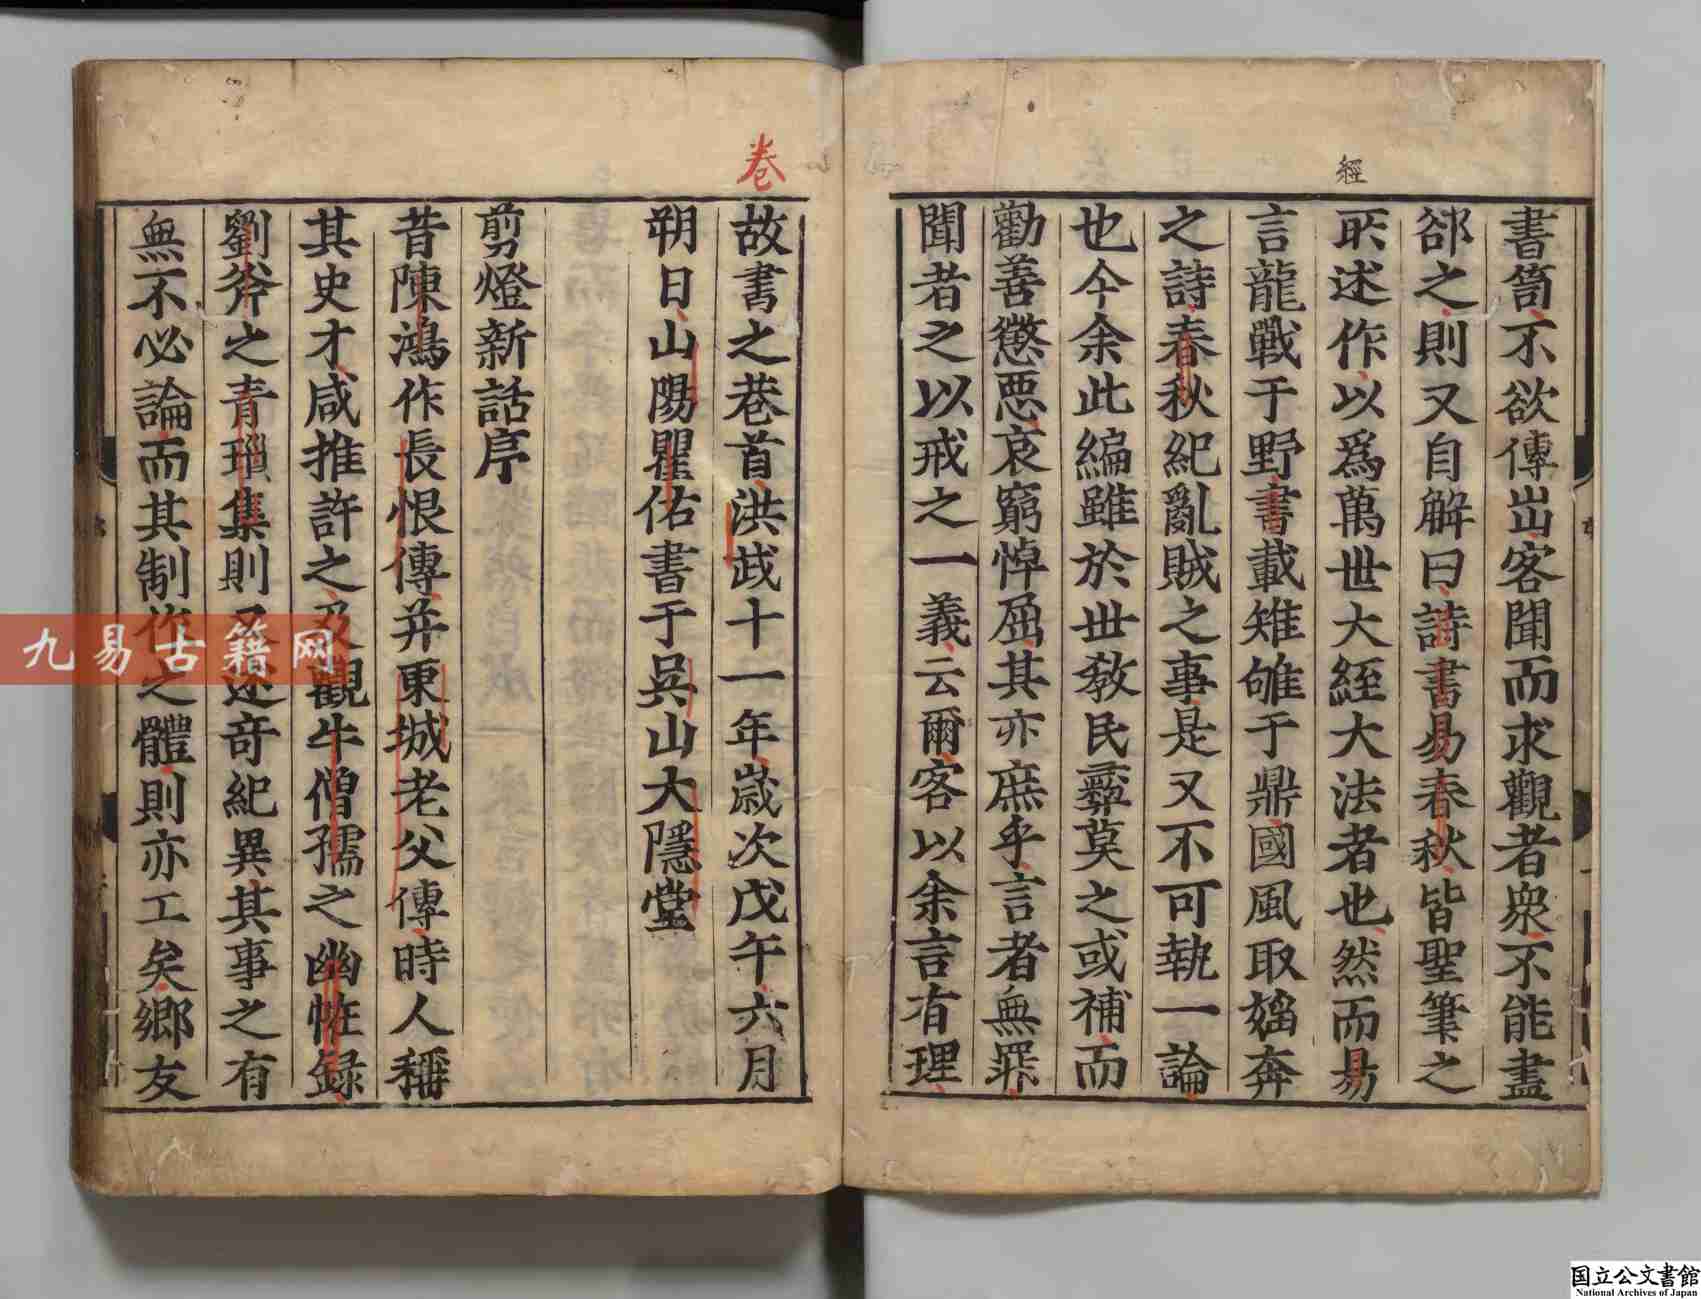 經
書笥不欲傳出客聞而求觀者衆不能盡
郤之則又自解曰詩書易春秋皆聖筆之
所述作以爲萬世大經大法者也然而易
言龍戰于野書載雉雊于鼎國風取媱奔
之詩春秋紀亂賊之事是又不可執一論
也今余此編雖於世教民彝莫之或補而
勸善懲惡哀窮悼屈其亦庶乎言者無罪
聞者之以戒之一義云爾客以余言有理
卷
故書之巷首洪武十一年歲次戊午六月
朔日山陽瞿佑書于吳山大隱堂
剪燈新話序
昔陳鴻作長恨傳并東城老父傳時人稱
其史才咸推許之及觀牛僧孺之幽恠録
劉斧之青瑣集則又述奇紀異其事之有
無不必論而其制作之體則亦工矣鄉友
九易古籍网
国立公文書館
National Archives of Japan